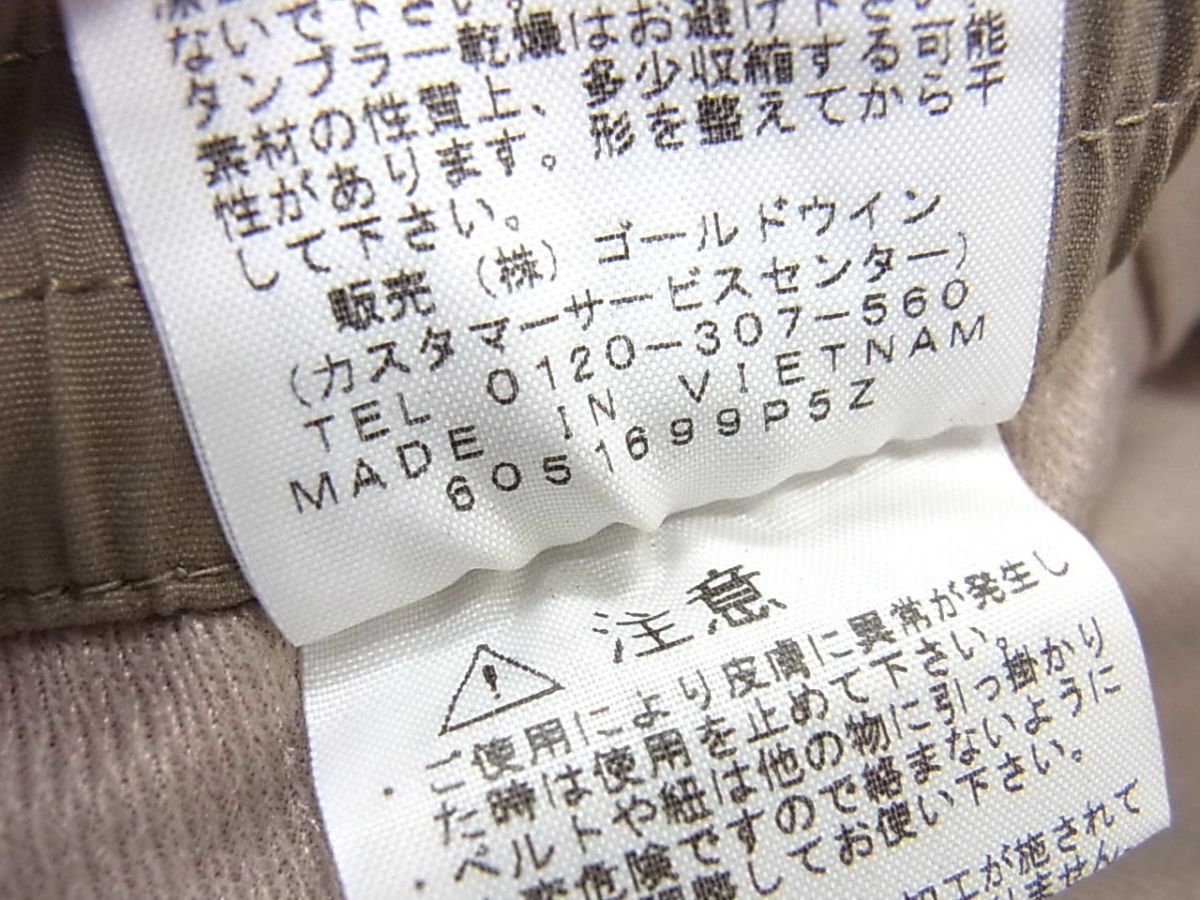 ないで下さい。
タンブラー乾燥はお避け下さい
素材の性質上、多少収縮する可能
性があります。形を整えてから干
して下さい。
販売 (株) ゴールドウイン
(カスタマーサービスセンター)
TEL 0120-307-560
MADE IN VIETNAM
6051699P5Z
注意
・ご使用により皮膚に異常が発生し
た時は使用を止めて下さい。
・ベルトや紐は他の物に引っ掛かり
危険ですので絡まないように
してお使い下さい。
加工が施されて